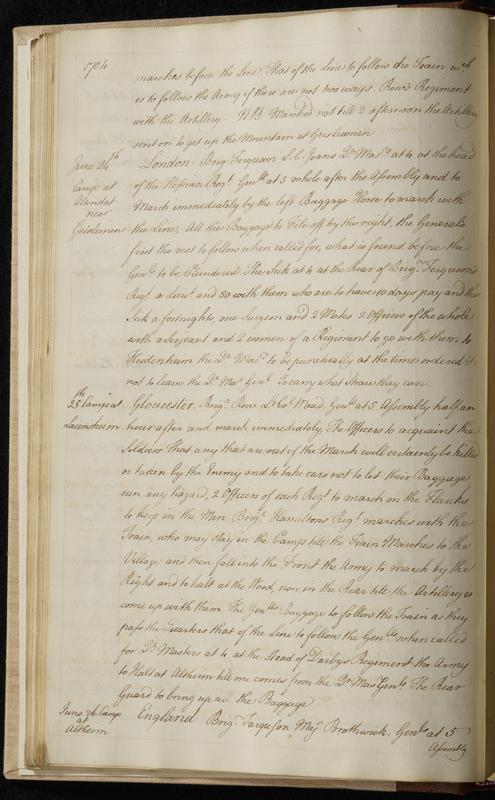 1704
marches before the Line That of the Line to follow the Train wch
is to follow the Army if there are not two ways. Row's Regiment
with the Artillery. N B. Marched not till 2 afternoon the Artillery
sent on to get up the Mountain at Geislinnen
June 24th
Camp at
near
Geislennen
London: Brig. Ferguson L. C. Joans Qr Masrs at 4 at the head
of the Hessian Regt. Genll at 5 whole after the Assembly and to
March immediately by the left Baggage Horse to march with
the Lines, All the Baggage to File off by the right, the Generals
first the rest to follow when called for, what is found before the
Genls to be Plundered. The Sick at 4 at the Rear of Brigr. Ferguson's
Regt. a Lieut. and 30 with them who are to have 10 days pay and the
Sick a fortnights, one Surgeon and 2 Mates 2 Officers of the whole
with a Serjeant and 2 women of a Regiment to go with them to
Heidenheim the Qr Masrs to be punctually at the time ordered &
not to leave the Qr Masr Genl. To carry what Straw they can
25th Camp at
Launsheim
Gloucester. Brigr. Row Lt Col. Wead, Genl at 5 Assembly half an
hour after and march immediately, The Officers to acquaint the
Soldiers That any that are out of the March will certainly be killed
or taken by the Enemy and to take care not to let their Baggage
run any hazard, 2 Officers of each Regt to march on the Flanks
to keep in the Men Brigr. Hamilton's Regt. marches with the
Train, who may stay in the Camp till the Train Marches to the
Village and then fall into the Front the Army to march by the
Right and to halt at the Wood, now in the Rear till the Artillery is
come up with them The Genlls Baggage to follow the Train as they
pass the Quarters that of the Line to follow the Genlls when called
for Qr Masters at 4 at the Head of Darby's Regiment the Army
to Halt at Altheim till one comes from the Qr Masr Genlls The Rear
Guard to bring up all the Baggage
June 26 Camp
at
Altheim
England Brigr. Ferguson Majr Brothwick. Genll at 5
Assembly